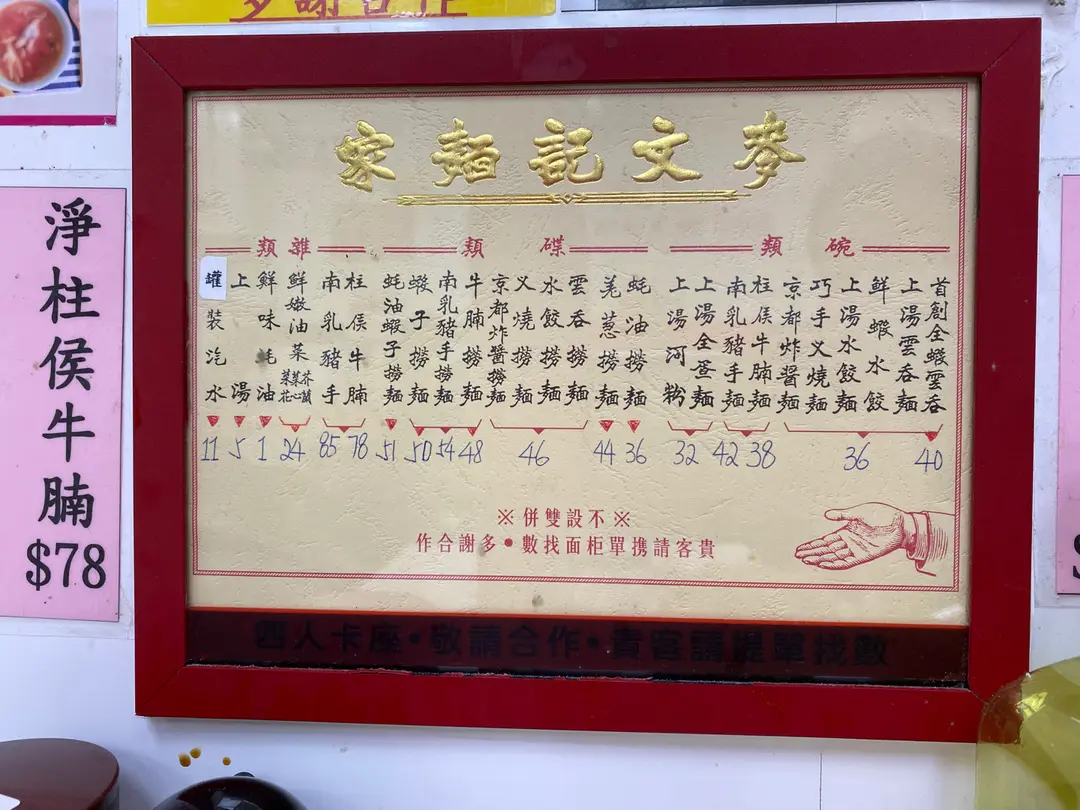 多謝合作
麥文記麵家
碗類
首創全蝦雲吞
40
上湯雲吞麵
鮮蝦水餃
上湯水餃麵
巧手义燒麵
京都炸醬麵
36
柱侯牛腩麵
38
南乳豬手麵
42
上湯全蛋麵
上湯河粉
32
碟類
蚝油撈麵
36
羗葱撈麵
44
雲吞撈麵
水餃撈麵
义燒撈麵
京都炸醬撈麵
46
牛腩撈麵
48
南乳豬手撈麵
54
蝦子撈麵
50
蚝油蝦子撈麵
51
雜類
柱侯牛腩
78
南乳豬手
85
鮮嫩油菜
芥蘭
菜心
菜花
24
鮮味蚝油
1
上湯
5
罐裝汽水
11
※不設雙併※
貴客請携單柜面找數•多謝合作
四人卡座•敬請合作•貴客請提單找數
淨柱侯牛腩
$78